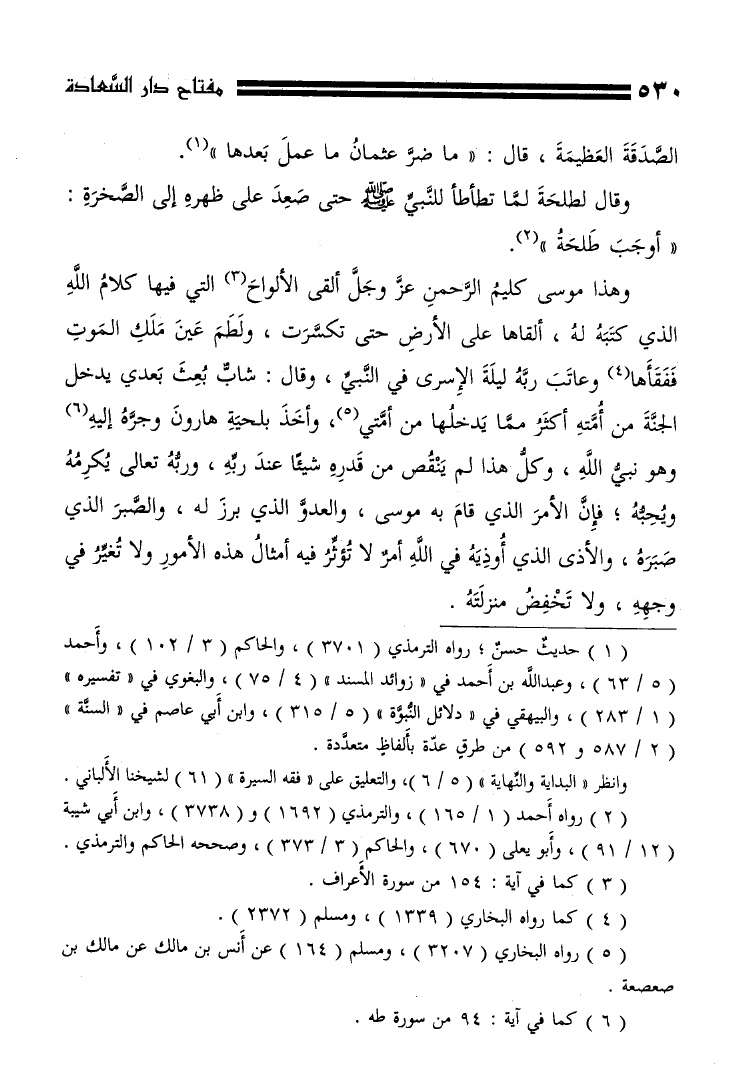 ٥٣٠ مفتاح دار السَّعادة
الصَّدَقَةَ العَظيمَةَ ، قال : « ما ضرَّ عثمانُ ما عملَ بَعدها »(١).
وقال لطلحَةَ لمَّا تطأطأ للنَّبيِّ ﷺ حتى صَعِدَ على ظهرهِ إلى الصَّخرَةِ :
« أوجَبَ طَلحَةُ »(٢).
وهذا موسى كليمُ الرَّحمنِ عزَّ وجَلَّ ألقى الألواحَ(٣) التي فيها كلامُ اللَّهِ
الذي كتَبَهُ لهُ ، ألقاها على الأرضِ حتى تكسَّرَت ، ولَطَمَ عَينَ مَلَكِ المَوتِ
فَفَقَأَها(٤) وعاتَبَ ربَّهُ ليلَةَ الإسرى في النَّبيِّ ، وقال : شابٌّ بُعِثَ بَعدي يدخل
الجنَّةَ من أُمَّتهِ أكثَرُ ممَّا يَدخلُها من أمَّتي(٥)، وأخَذَ بلحيَةِ هارونَ وجرَّهُ إليهِ(٦)
وهو نبيُّ اللَّهِ ، وكلُّ هذا لم يَنْقُص من قدرهِ شيئًا عندَ ربِّهِ ، وربُّهُ تعالى يُكرِمُهُ
ويُحِبُّهُ ؛ فإنَّ الأمرَ الذي قامَ به موسى ، والعدوَّ الذي برزَ له ، والصَّبرَ الذي
صَبَرَهُ ، والأذى الذي أُوذِيَهُ في اللَّهِ أمرٌ لا تُؤثِّرُ فيه أمثالُ هذه الأمورِ ولا تُغيِّرُ في
وجهِهِ ، ولا تَخْفِضُ منزلَتَهُ .
( ١ ) حديثٌ حسنٌ ؛ رواه الترمذي ( ٣٧٠١ ) ، والحاكم ( ٣ / ١٠٢ ) ، وأَحمد
( ٥ / ٦٣ ) ، وعبداللَّه بن أَحمد في « زوائد المسند » ( ٤ / ٧٥ ) ، والبغوي في « تفسيره »
( ١ / ٢٨٣ ) ، والبيهقي في « دلائل النُّبوَّة » ( ٥ / ٣١٥ ) ، وابن أَبي عاصم في « السنَّة »
( ٢ / ٥٨٧ و ٥٩٢ ) من طرقٍ عدّة بأَلفاظٍ متعدَّدة .
وانظر « البداية والنِّهاية » ( ٥ / ٦ )، والتعليق على « فقه السيرة » ( ٦١ ) لشيخنا الأَلباني .
( ٢ ) رواه أَحمد ( ١ / ١٦٥ ) ، والترمذي ( ١٦٩٢ ) و ( ٣٧٣٨ ) ، وابن أَبي شيبة
( ١٢ / ٩١ ) ، وأَبو يعلى ( ٦٧٠ ) ، والحاكم ( ٣ / ٣٧٣ ) ، وصححه الحاكم والترمذي .
( ٣ ) كما في آية : ١٥٤ من سورة الأَعراف .
( ٤ ) كما رواه البخاري ( ١٣٣٩ ) ، ومسلم ( ٢٣٧٢ ) .
( ٥ ) رواه البخاري ( ٣٢٠٧ ) ، ومسلم ( ١٦٤ ) عن أَنس بن مالك عن مالك بن
صعصعة .
( ٦ ) كما في آية : ٩٤ من سورة طه .